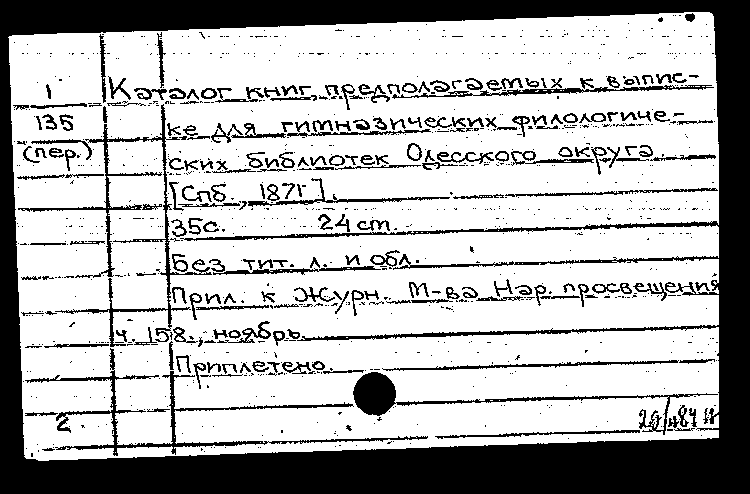 1 Каталог книг, предполагаемых к выпис-
135 ке для гимназических филологиче-
(пер.) ских библиотек Одесского округа
[Спб., 1871].
35с. 24 ст.
Без тит. л. и обл.
Прил. к Журн. М-ва Нар. просвещения
ч. 158., ноябрь.
Приплетено.
2